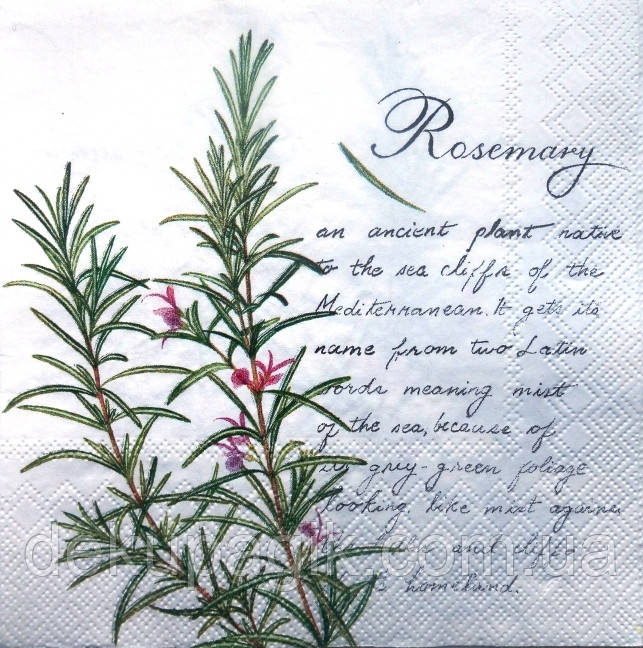 Rosemary
an ancient plant native
to the sea cliffs of the
Mediterranean. It gets its
name from two Latin
words meaning mist
of the sea, because of
its grey-green foliage
looking like mist
and
homeland.
dekupagik.com.ua